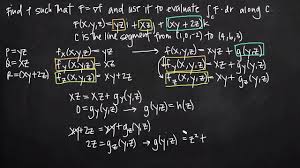 Find f such that F=∇f and use it to evaluate ∫ F·dr along C.
F(x,y,z) = yz i + xz j + (xy+2z)k
C is the line segment from (1,0,-2) to (4,6,3)
P=yz
Q=xz
R=(xy+2z)
fx(x,y,z)=yz
fy(x,y,z)=xz
fz(x,y,z)=xy+2z
f(x,y,z)=xyz+g(y,z)
fy(x,y,z)=xz+gy(y,z)
fz(x,y,z)=xy+gz(y,z)
xz=xz+gy(y,z)
0=gy(y,z) → g(y,z)=h(z)
xy+2z=xy+gz(y,z)
2z=gz(y,z) → g(y,z)=z²+